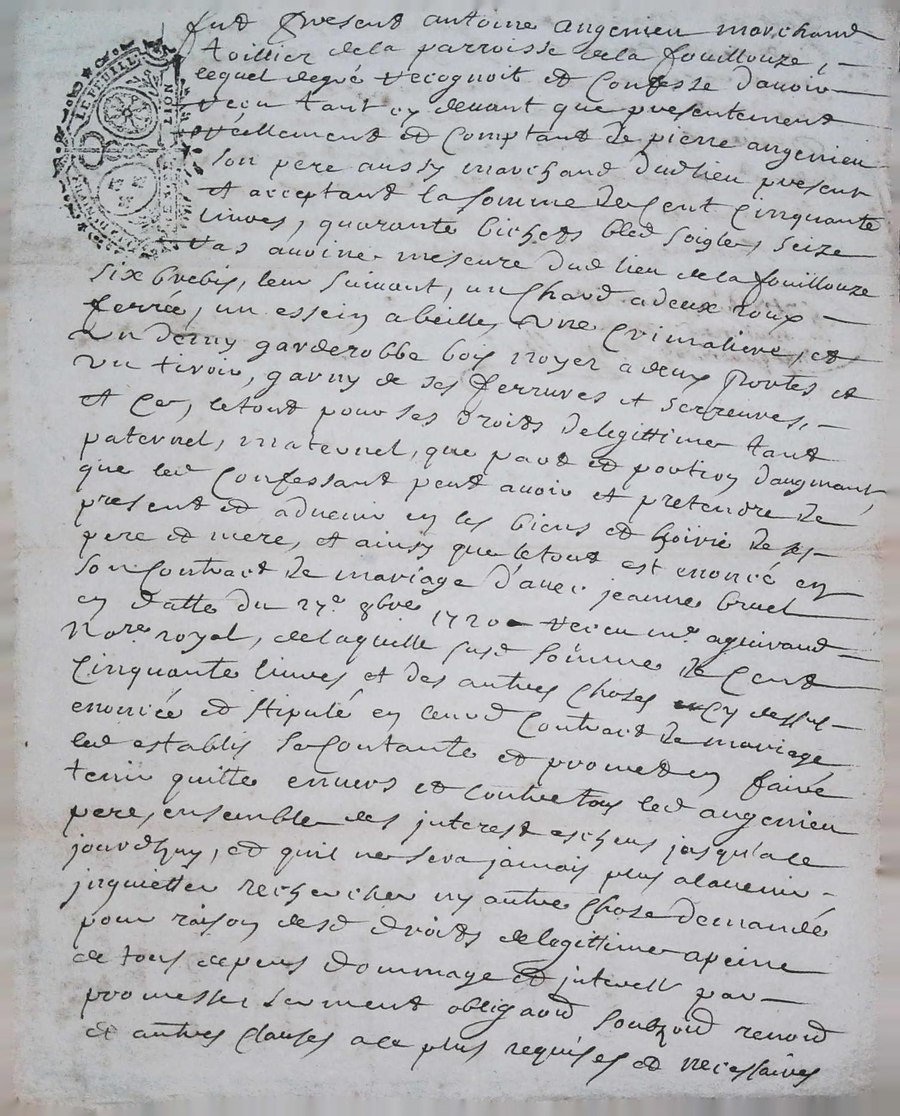 LE FEUILLE
LION
fut present antoine angenieu marchand
toillier dela parroisse dela fouillouze,
lequel degré recognoit et confesse d'avoir
receu tant cy devant que presentement
réellement et comptant de pierre angenieu
son pere aussy marchand dud lieu present
et acceptant la somme de cent cinquante
livres, quarante bichets bled soigle, seize
ras avoine mesure dud lieu de la fouillouze
six brebis, leur suivant, un chard a deux roux
ferrée, un essein abeille, une crimaliere, et
un demy garderobbe bois noyer a deux portes et
un tiroir, garny de ses ferrures et serreures,
et ce, letout pour ses droits delegittime tant
paternel, maternel, que part et portion d'augmant,
que led confessant peut avoir et pretendre de
present et advenir en les biens et hoirie de ses
pere et mere, et ainsy que letout est enoncé en
son contract de mariage d'avec jeanne bruel
en datte du 27e 8bre 1720 receu me aguiraud
Nore royal, delaquelle susd somme de cent
cinquante livres et des autres choses cy dessus
enoncée et stipulé en leurd contract de mariage
led establis se contante et promet en faire
tenir quitte envers et contre tous led angenieu
pere, ensemble des interest escheus jusqu'a ce
jourdhuy, et quil ne sera jamais plus alavenir
jnquietter rechercher ny autre chose demandé
pour raison desd droits delegittime apeine
de tous depens dommage et interest par
promesse serment obligaon soubzon renon
et autres clauses a ce plus requises et necessaires